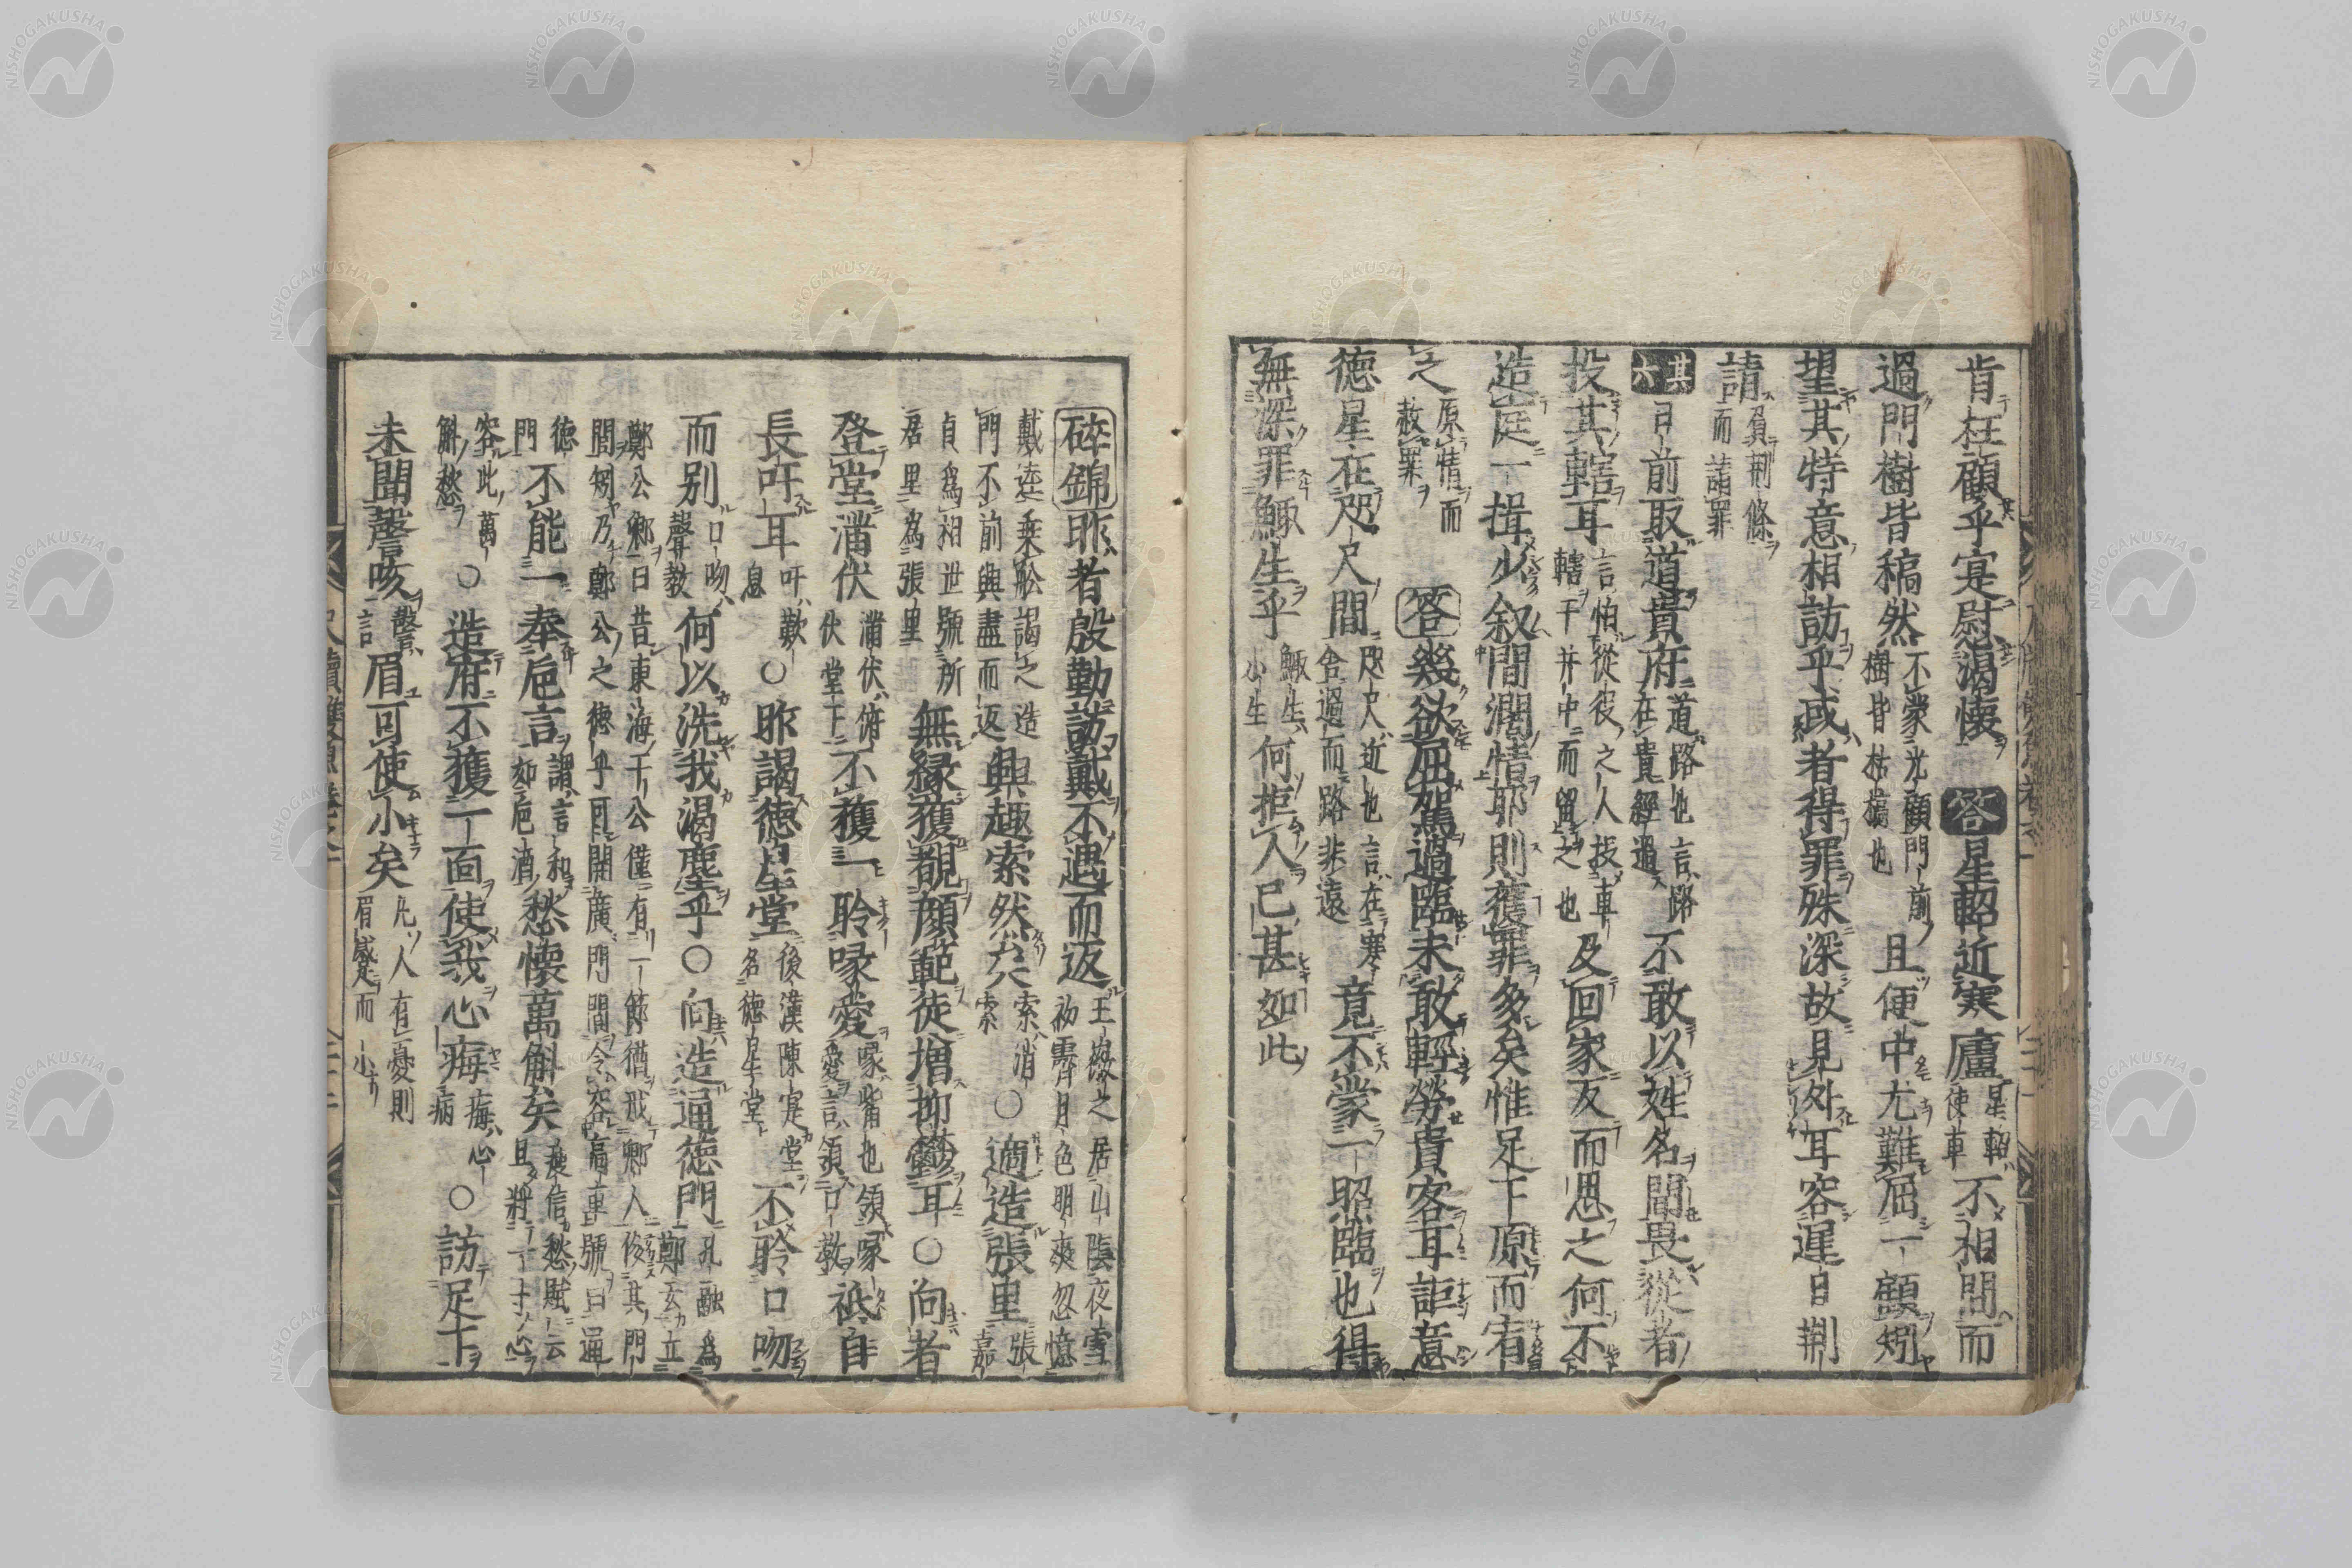 肯枉顧乎寔慰渇懐 答 星軺近寒廬 星軺使車 不相問而
過門樹皆稿然 不蒙光顧門前樹皆枯槁也 且便中尤難屈一顧矧
望其特意相訪乎或者得罪殊深故見外耳容遲日荆
請 負荆條而請罪
其六 日前取道貴府 道路也言路在貴經過 不敢以姓名聞畏從者
投其轄耳 言怕從彼之人投車轄于井中而留之也 及回家反而思之何不
造庭一揖少叙間濶情耶則獲罪多矣惟足下原而宥
之 原情而赦罪 答 幾欲屈駕過臨未敢輕勞貴客耳詎意
德星在咫尺間 咫尺近也言在寒舎過而路非遠 竟不蒙一照臨也得
無深罪鯫生乎 鯫生小生 何拒人已甚如此
碎錦 昨者殷勤訪戴不遇而返 王徽之居山陰夜雪初霽月色明爽忽憶
戴逵乗舩謁之造門不前興盡而返 興趣索然矣 索消索 ○適造張里 張嘉
貞為相世號所居里為張里 無縁獲覩顔範徒増抑鬱耳○向者
登堂潛伏 潛伏俯伏堂下 不獲一聆喙愛 喙嘴也領喙愛言領口教 祗自
長吁耳 吁歎息 ○昨謁德星堂 後漢陳寔堂名德星堂 不聆口吻
而别 口吻聲教 何以洗我渇塵乎○向造通德門 孔融為鄭玄立
鄭公鄕曰昔東海于公僅有一節猶戒鄕人侈其門
閭矧乃鄭公之德乎可開廣門閭令容高車號曰通
德門 不能一奉巵言 謂言和如巵酒 愁懐萬斛矣 庾信愁賦云且將一寸心
容此萬斛愁 ○造府不獲一面使我心痗 痗心病 ○訪足下
未聞謦咳 謦言 眉可使小矣 凡人有憂則眉蹙而小